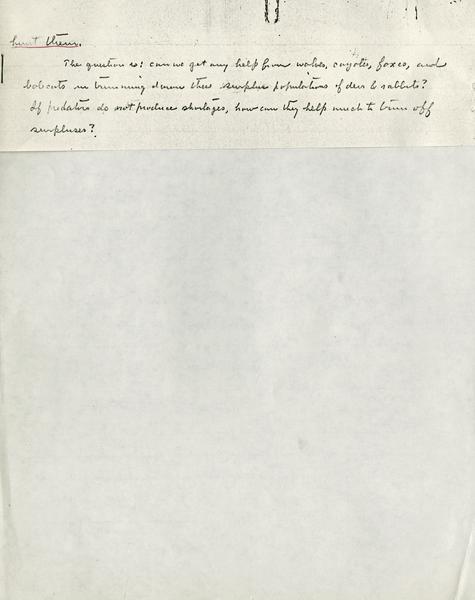 hunt them.
The question is: can we get any help from wolves, coyotes, foxes, and
bobcats in trimming down these surplus populations of deer & rabbits?
If predators do not produce shortages, how can they help much to trim off
surpluses?